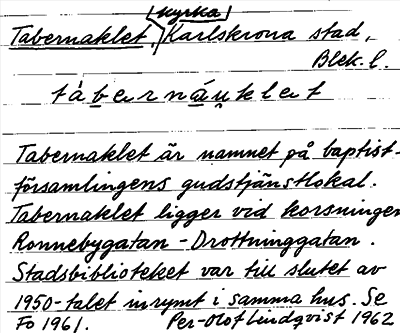 kyrka
Tabernaklet, Karlskrona stad,
Blek. l.
tábernäuklet
Tabernaklet är namnet på baptist-
församlingens gudstjänstlokal.
Tabernaklet ligger vid korsningen
Ronnebygatan - Drottninggatan.
Stadsbiblioteket var till slutet av
1950-talet inrymt i samma hus. Se
Fo 1961. Per-Olof Lindqvist 1962